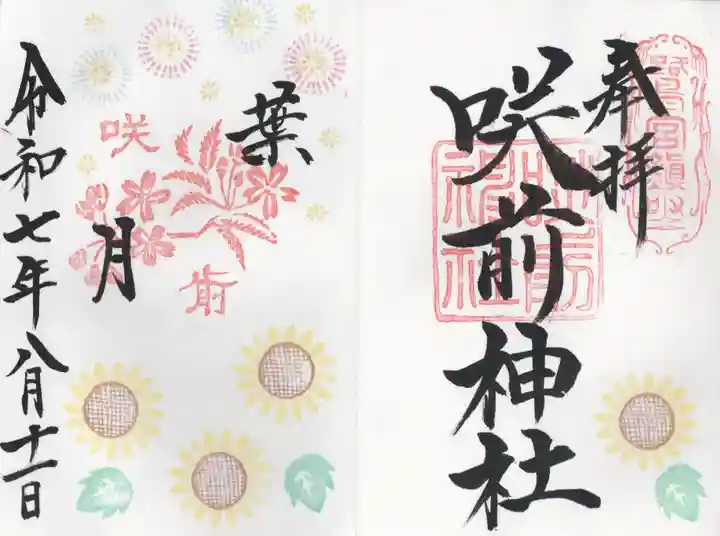 奉拝
咲前神社
葉
月
咲
前
令和七年八月十一日